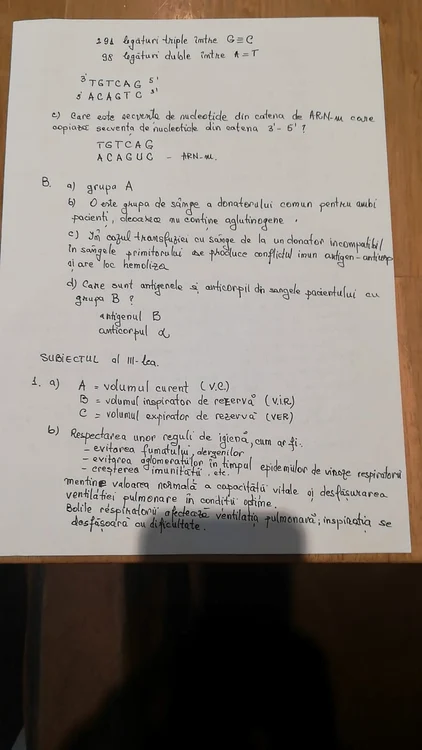 291 legături triple între G≡C
98 legături duble între A=T
3' TGTCAG 5'
5' ACAGTC 3'
c) Care este secvența de nucleotide din catena de ARN-m care
copiază secvența de nucleotide din catena 3'-5' ?
TGTCAG
ACAGUC - ARN-m.
B. a) grupa A
b) O este grupa de sânge a donatorului comun pentru ambii
pacienți, deoarece nu conține aglutinogene.
c) În cazul transfuziei cu sânge de la un donator incompatibil
în sângele primitorului se produce conflictul imun antigen-anticorp
și are loc hemoliza
d) Care sunt antigenele și anticorpii din sângele pacientului cu
grupa B ?
antigenul B
anticorpul α
SUBIECTUL al III-lea.
1. a) A = volumul curent (V.C.)
B = volumul inspirator de rezervă (V.I.R)
C = volumul expirator de rezervă (VER)
b) Respectarea unor reguli de igienă, cum ar fi:
- evitarea fumatului, alergenilor
- evitarea aglomerațiilor în timpul epidemiilor de viroze respiratorii
- creșterea imunității. etc.
mentine valoarea normală a capacității vitale și desfășurarea
ventilației pulmonare în condiții optime.
Bolile respiratorii afectează ventilația pulmonară; inspirația se
desfășoară cu dificultate.